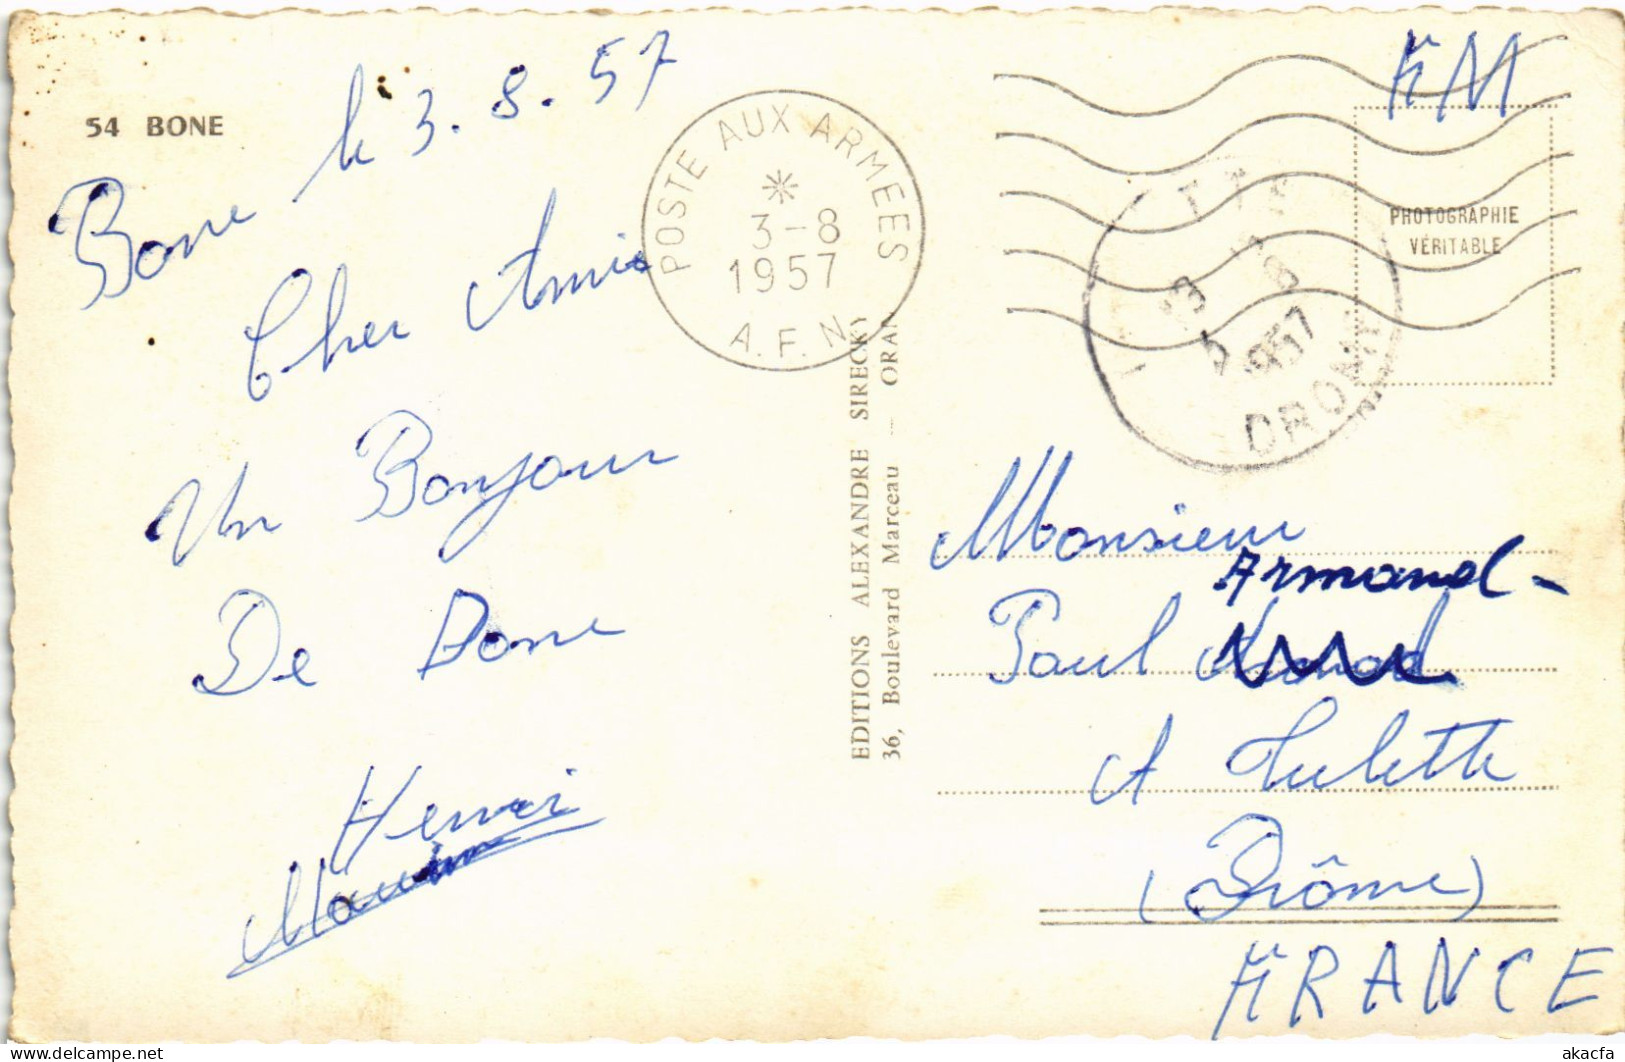 54 BONE
Bone le 3.8.57
Cher Ami
Un Bonjour
De Bone
Henri
POSTE AUX ARMEES
3-8
1957
A.F.N
EDITIONS ALEXANDRE SIRECKY
36, Boulevard Marceau — ORAN
FM
PHOTOGRAPHIE
VÉRITABLE
1957
DROME
Monsieur
Armand -
Paul
A Tulette
(Drôme)
FRANCE
akacfa